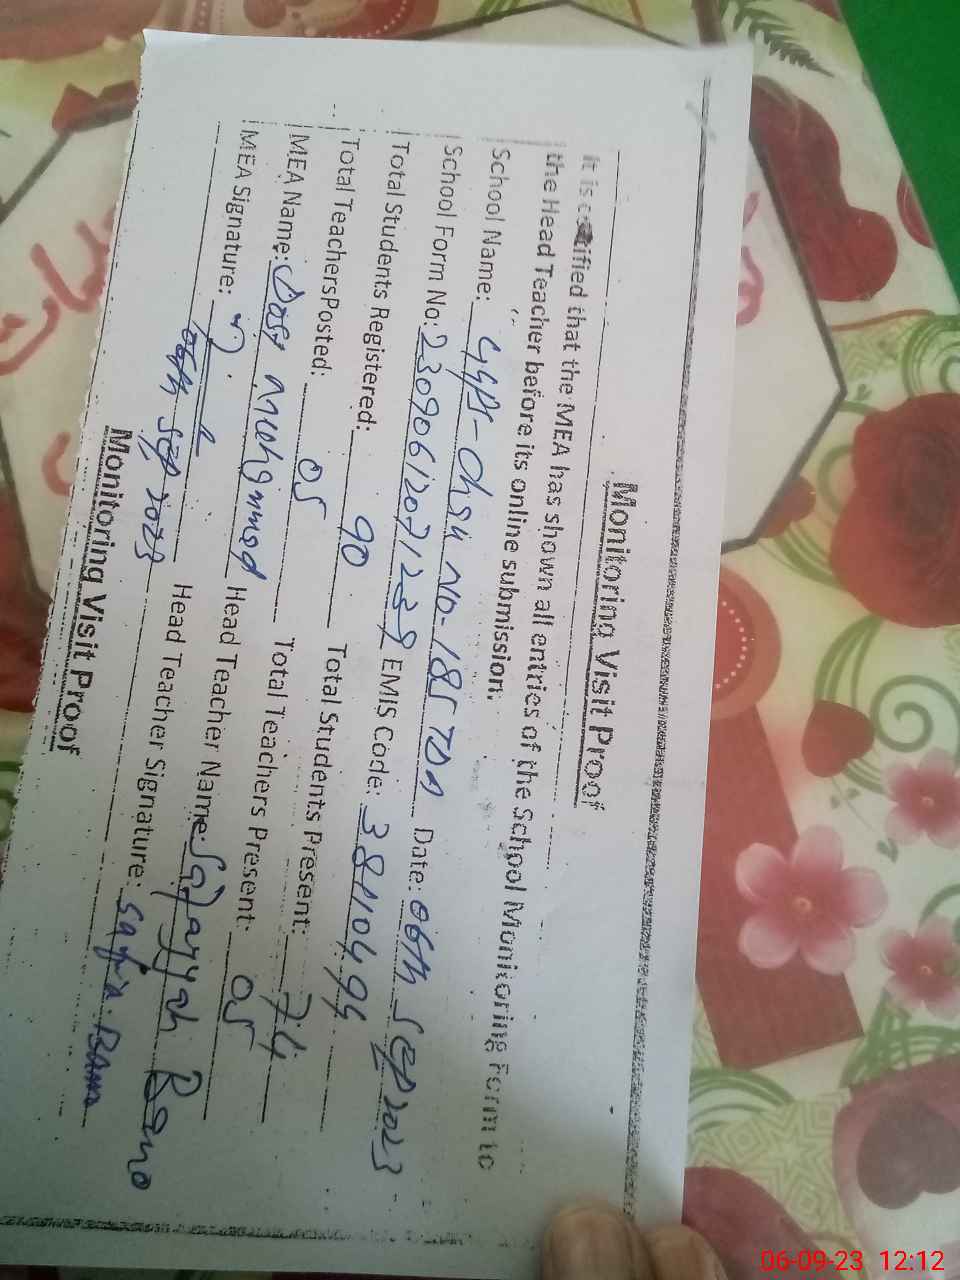 Monitoring Visit Proof
It is certified that the MEA has shown all entries of the School Monitoring Form to
the Head Teacher before its online submission.
School Name: GGPS-Chak NO-185 TDA Date: 06th Sep 2023
School Form No: 230906120712 EMIS Code: 38810494
Total Students Registered: 90 Total Students Present: 74
Total TeachersPosted: 05 Total Teachers Present: 05
MEA Name: Dost Muhammad Head Teacher Name: Bano
MEA Signature: Head Teacher Signature: Safia Bano
06th Sep 2023
Monitoring Visit Proof
06-09-23 12:12